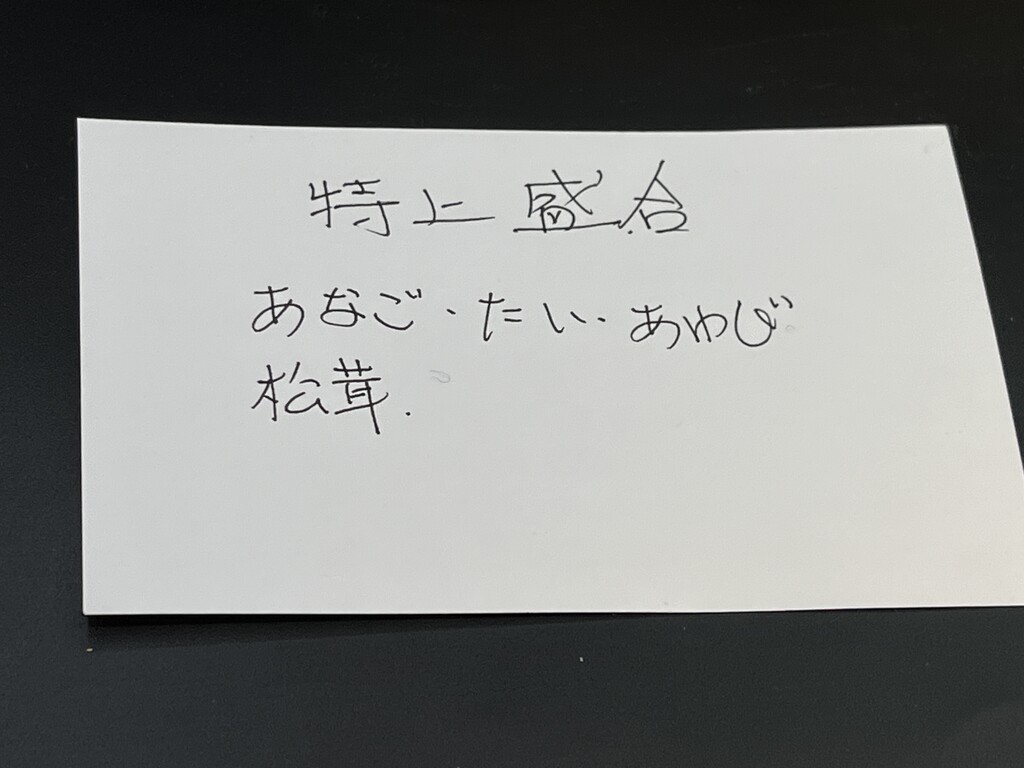 特上盛合
あなご・たい・あわび
松茸.